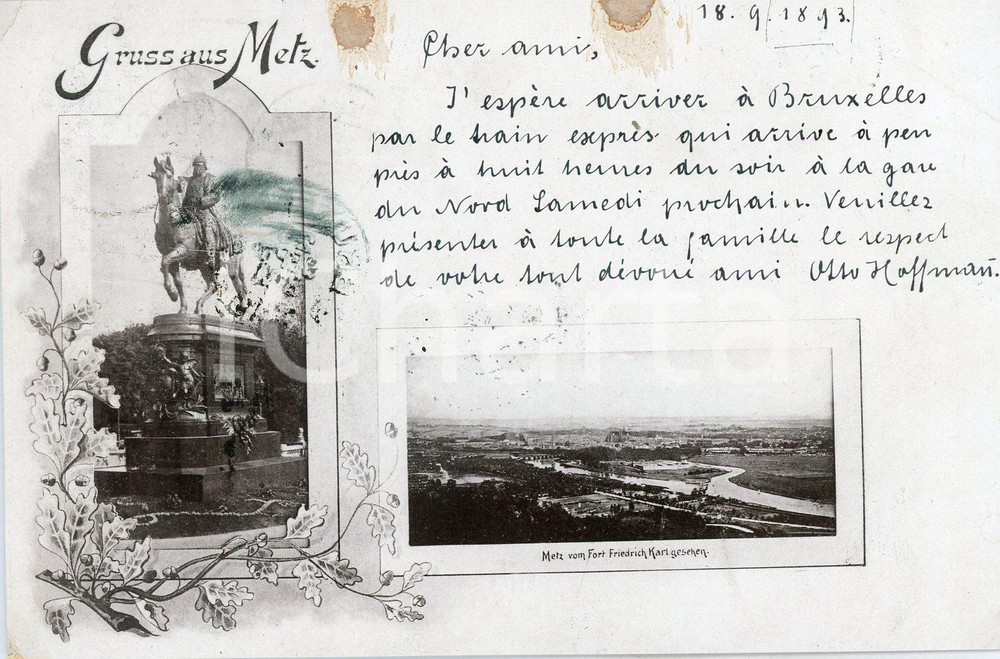 Gruss aus Metz.
18. 9. 1893.
Cher ami,
J'espère arriver à Bruxelles
par le train exprès qui arrive à peu
près à huit heures du soir à la gare
du Nord Samedi prochain. Veuillez
présenter à toute la famille le respect
de votre tout dévoué ami Otto Hoffmann.
icharta
Metz vom Fort Friedrich Karl gesehen.